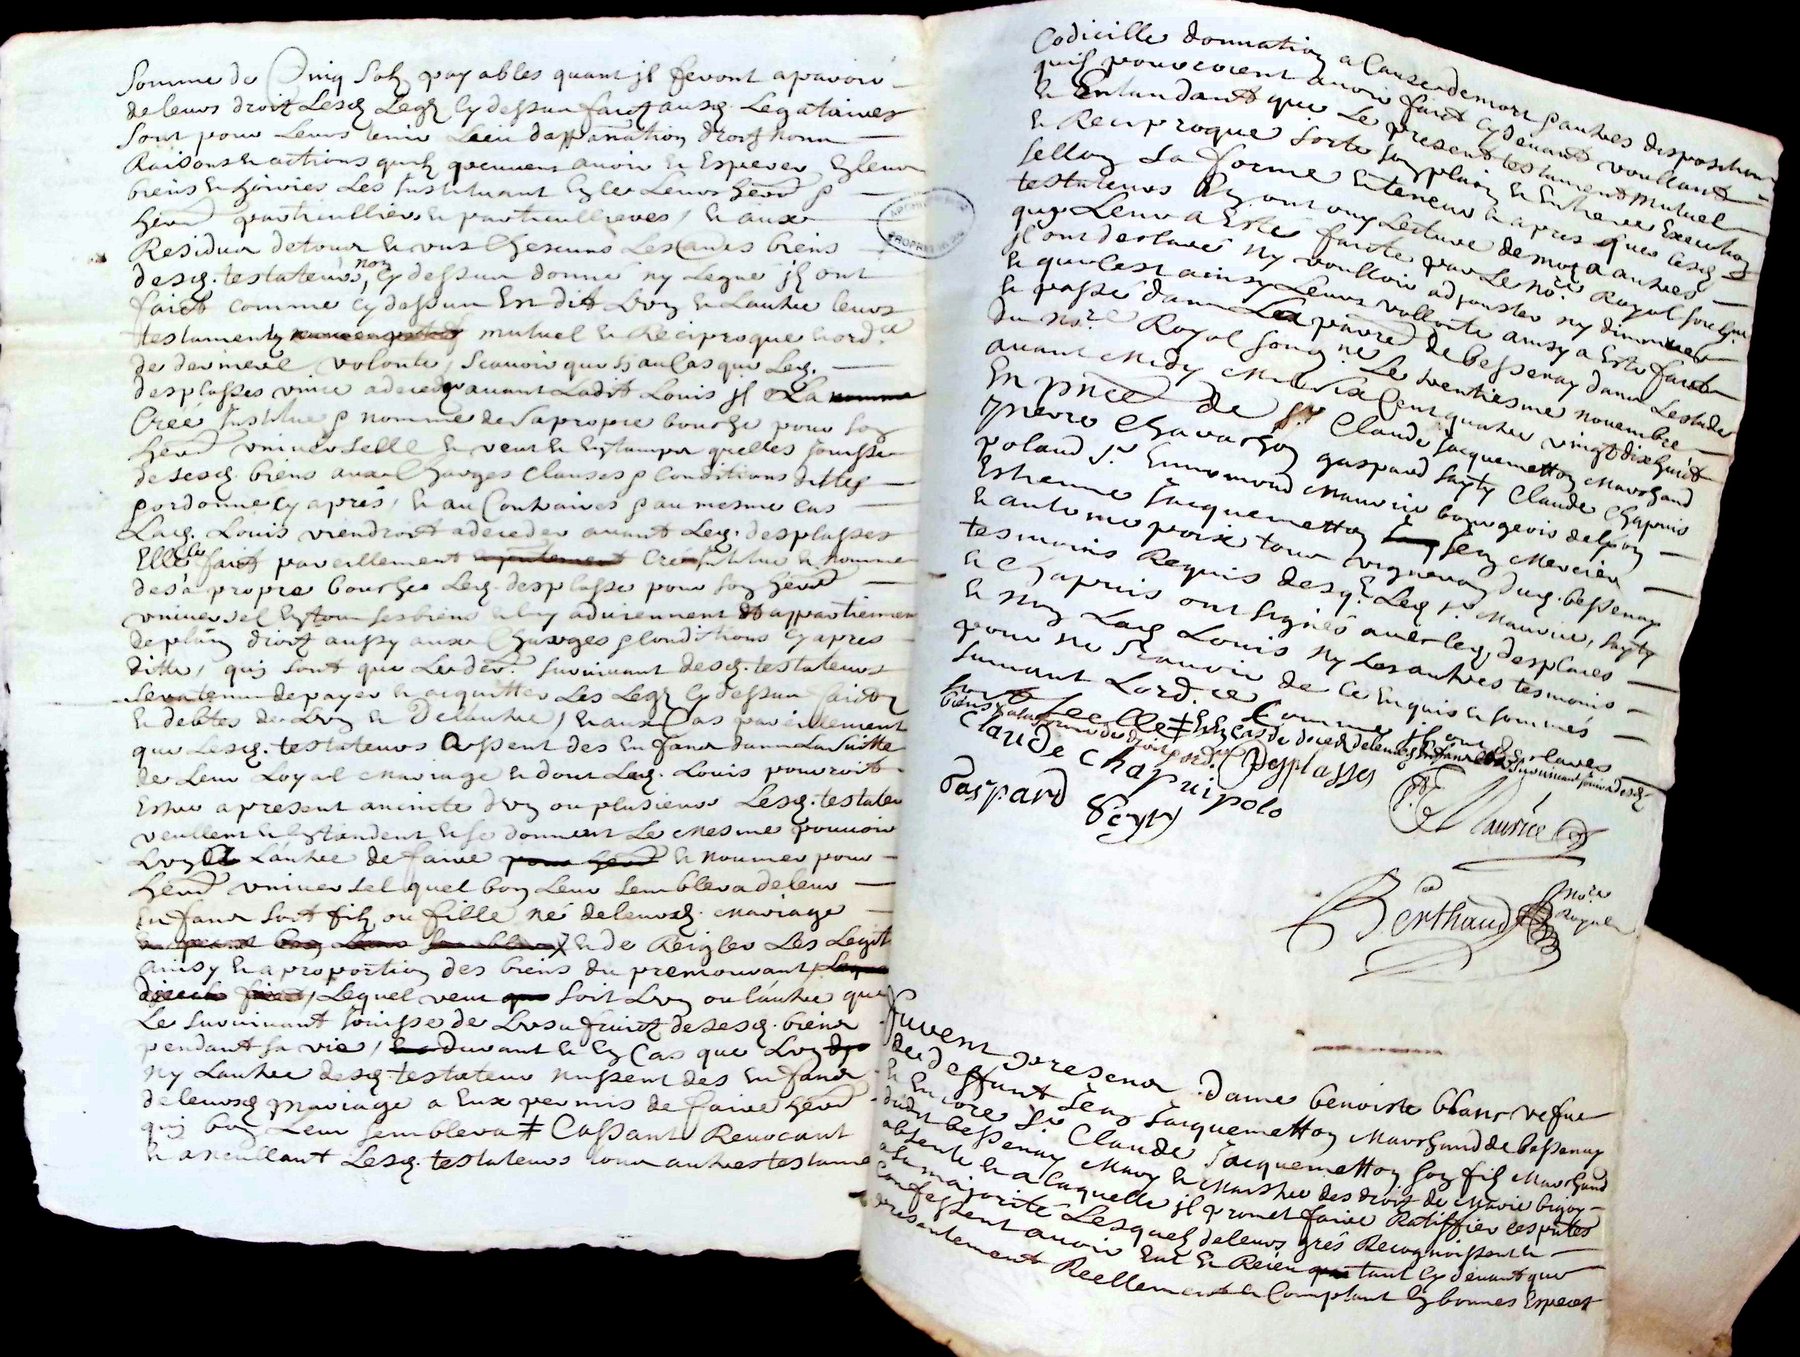 Somme de Cinq solz payables quant jl seront apavoir
de leurs droitz Lesd. Legz cy dessus faictz ausd. Legataires
sont pour Leurs tenir Lieu dapanation droitz noms
Raisons et actions quilz peuvent avoir et Esperer En leurs
biens et hoiries Les Instituant En iceux Leurs herers
herers particulliers et particullieres, et aux
Residus de tous et uns Chescuns Les autres biens
desd. testateurs, non cy dessus donné ny Legué jlz ont
faict comme cy dessus Est dit L'un et L'autre leurs
testaments mutuel et Reciproque et ord.ce
de derniere volonte, scavoir que au Cas que Led.
desplasses vint a deceder avant Ladit Louis jl La
Creé Institue et nomme de sa propre bouche pour son
herere universelle et veut et Entend quelles jouisse
de sesd. biens aux Charges Clauses et Conditions dittes
et ordonne cy aprés, et au Contraires et au mesme Cas
Lad. Louis viendroit a deceder avant Led. desplasses
Elle faict pareillement Creé Institue et nomme
de sa propre bouche Led. desplasse pour son herer
universel En tous ses biens et luy adviennent et appartiennent
de plain droitz aussy aux Charges et Conditions cy apres
ditte, quj sont que Le der. survivant desd. testateurs
sera tenu de payer et acquitter Les Legz cy dessus faictz
et debtes de L'un et De l'autre, et aux Cas pareillement
que Lesd. testateurs Eussent des Enfans dans La suitte
de Leur Loyal Mariage et dont Lad. Louis pourroit
Estre a present anceinte d'un ou plusieurs Lesd. testateurs
veullent et Entendent et se donnent Le Mesme pouvoir
L'un et L'autre de faire et nommer pour
herer universel quel bon Leur semblera de leur
Enfans soit filz ou fille né de leursd. Mariage
et de Reigler Les Legit
ainsy et a proportion des biens du premourant,
Lequel veut soit L'un ou l'autre que
Le survivant jouisse de L'usufruict de sesd. biens
pendant sa vie, durant et En Cas que L'un
Ny L'autre desd. testateurs nussent des Enfans
de leursd. Mariage a Eux permis de faire herer
quj bon Leur semblera Cassant Revocant
et annullant Lesd. testateurs tous autres testame
Codicille donnation a Cause de mort et autres disposition
quilz pourroient avoir faict cy devant voullant
et Entandant que Le present testament mutuel
et Reciproque sorte son plain et Entiere Execution
sellon sa forme et teneur et apres que Lesd.
testateurs En ont ouy Lecture de mot a autres
que Leur a Este faicte par Le no.re Royal soubz.
jl ont declaré Ny voulloir adjouster ny diminuer
et que C'est ainsy Leurs vollonte ainsy a Esté faict
et passé dans La parr. de bessenay dans L'estude
du no.re Royal soubz.ne Le trentiesme novembre
avant Midy Mil six Cent quatre vingt dix huict
En pnce de Sr. Claude Jacquemetton Marchand
pierre Chavachon gaspard sayty Claude Chapuis
poland Sr. Ennemond Maurice bourgeois de lyon
Estienne Jacquemetton Jean Mercier
et antoine poixe tous vigneron dud. bessenay
tesmoins Requis desq. Led. Sr. Maurice, sayty
et Chapuis ont signés avec led. desplaces
et non Lad. Louis Ny Les autres tesmoins
pour ne scavoir de ce Enquis et sommés
suivant Lord.ce Comme jl ont declaré
Claude Chapuipolo
Desplasses
Gaspard Seyty
E Maurice
Berthaud no.re Royal
furent presens dame benoiste blanc vefue
de deffunt Jean Jacquemetton Marchand de bessenay
et Encore Sr. Claude Jacquemetton son filz Marchand
dudit bessenay Mary et Maistre des droitz de Marie bigon
absente et a laquelle jl promet faire Ratiffier ces pntes
a sa majorité Lesquels de leurs gréz Recognoissent et
Confessent avoir Eut et Receu tant cy devant que
presentement Reellement et Comptant En bonnes Especes